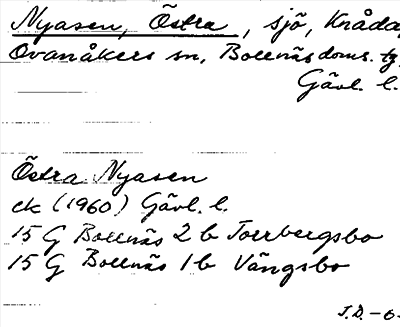 Nyasen, Östra, sjö, Knåda,
Ovanåkers sn, Bollnäs doms. tg,
Gävl. l.
Östra Nyasen
ek (1960) Gävl. l.
15 G Bollnäs 2 b Torrbergsbo
15 G Bollnäs 1 b Vängsbo
J.D. -6